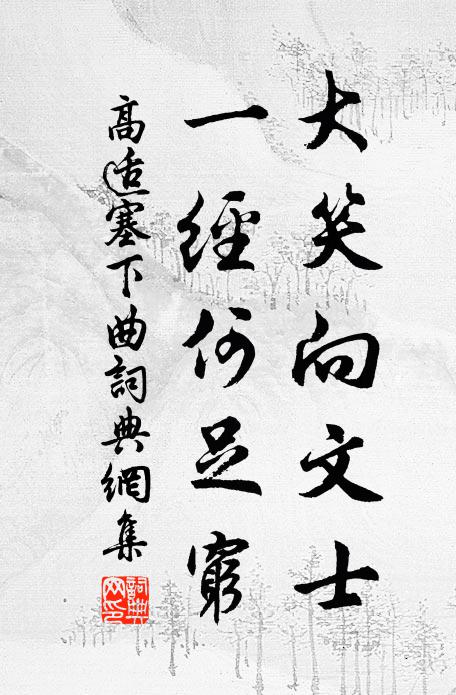 大笑向文士
一經何足窮
高适塞下曲詞典網集
詞典
網印